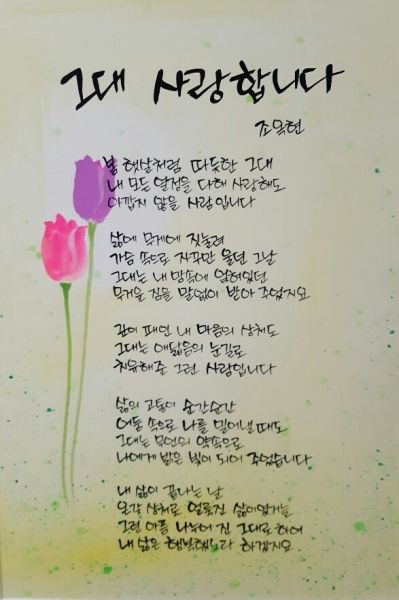 그대 사랑합니다
조옥현
봄 햇살처럼 따듯한 그대
내 모든 열정을 다해 사랑해도
아깝지 않을 사람입니다
삶에 무게에 짓눌려
가슴 속으로 자꾸만 울던 그날
그대는 내 맘속에 얹혀있던
무거운 짐을 말없이 받아 주었지요
깊이 패인 내 마음의 상처도
그대는 애닯음의 눈길로
치유해준 그런 사랑입니다
삶의 고통이 순간순간
어둠 속으로 나를 밀어낼 때도
그대는 무언의 약속으로
나에게 밝은 빛이 되어 주었습니다
내 삶이 끝나는 날
온갖 상처로 얼룩진 삶이었거늘
그런 아픔 나누어 진 그대로 하여
내 삶은 행복했노라 하겠지요